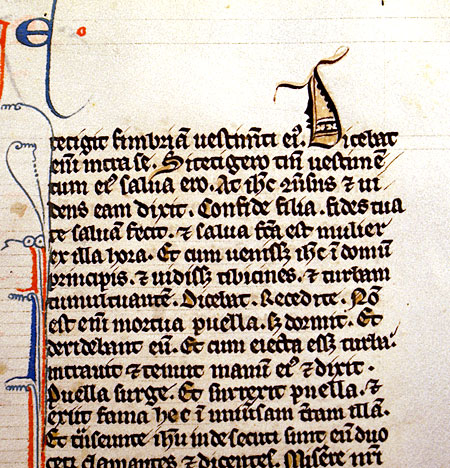 e
tetigit fimbriā uestimēti eiꝰ. Dicebat
enī intra se. Si tetigero tm̄ uestimē
tum eiꝰ salua ero. At ihc ꝯūsus ⁊ ui
dens eam dixit. Confide filia. fides tua
te saluā fecit. ⁊ salua fc̄a est mulier
ex illa hora. Et cum uenissꝫ ihc ī domū
principis. ⁊ uidissꝫ tibicines. ⁊ turbam
tumultuantē. Dicebat. Recedite. Nō
est enī mortua puella. sꝫ dormit. Et
deridebant eū. Et cum eiecta essꝫ turba.
intrauit ⁊ tenuit manū eiꝰ ⁊ dixit.
Puella surge. Et surrexit puella. ⁊
exiit fama hec ī uniūsam t̄ram illā.
Et t̄nseunte ih̄u inde secuti sunt eū duo
ceci clamantes ⁊ dicentes. Misēre nr̄i